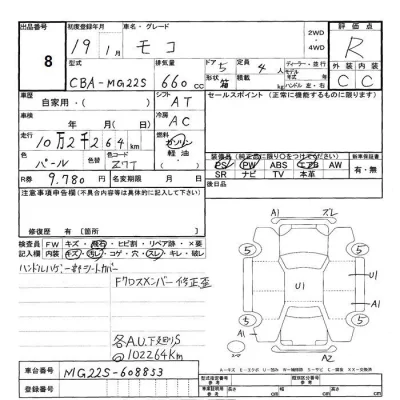 出品番号 8
初度登録年月 19年 1月
車名・グレード モコ
2WD ・ 4WD
評価点 R
型式 CBA-MG22S
排気量 660 cc
ドア 5
形状 箱
定員 4人
積載 kg
ディーラー・並行
モデル年式
ハンドル 左・右
外装 内装
C C
車歴 自家用・( )
シフト AT
セールスポイント (正常に機能するものに限ります)
車検 年 月( 日)
冷房 AC
走行 10万2千264km
燃料 ガソリン 軽油 ( )
色 パール 色替 カラーNo. Z7T
装備品 (純正品に限り○をつけてください)
PS PW ABS エアB AW
SR ナビ TV 本革
新車保証書 有・無
R券 9.780円 名変期限 月 日
後日品
注意事項申告欄 (不具合内容等は具体的に記入して下さい)
修復歴 有〔箇所 〕
検査員記入欄
FW キズ・飛石・ヒビ割・リペア跡・×要
内装 キズ・汚レ・コゲ・穴・スレ・キレ・破レ
Fクロスメンバー修正歪
各A.U.下廻りS
@102264km
車台番号 MG22S-608853
登録番号
A1 スレ
5 5
U1 U1
A1
5 5
A1 A2
型式指定番号
類別区分番号
長さ cm 幅 cm 高さ cm